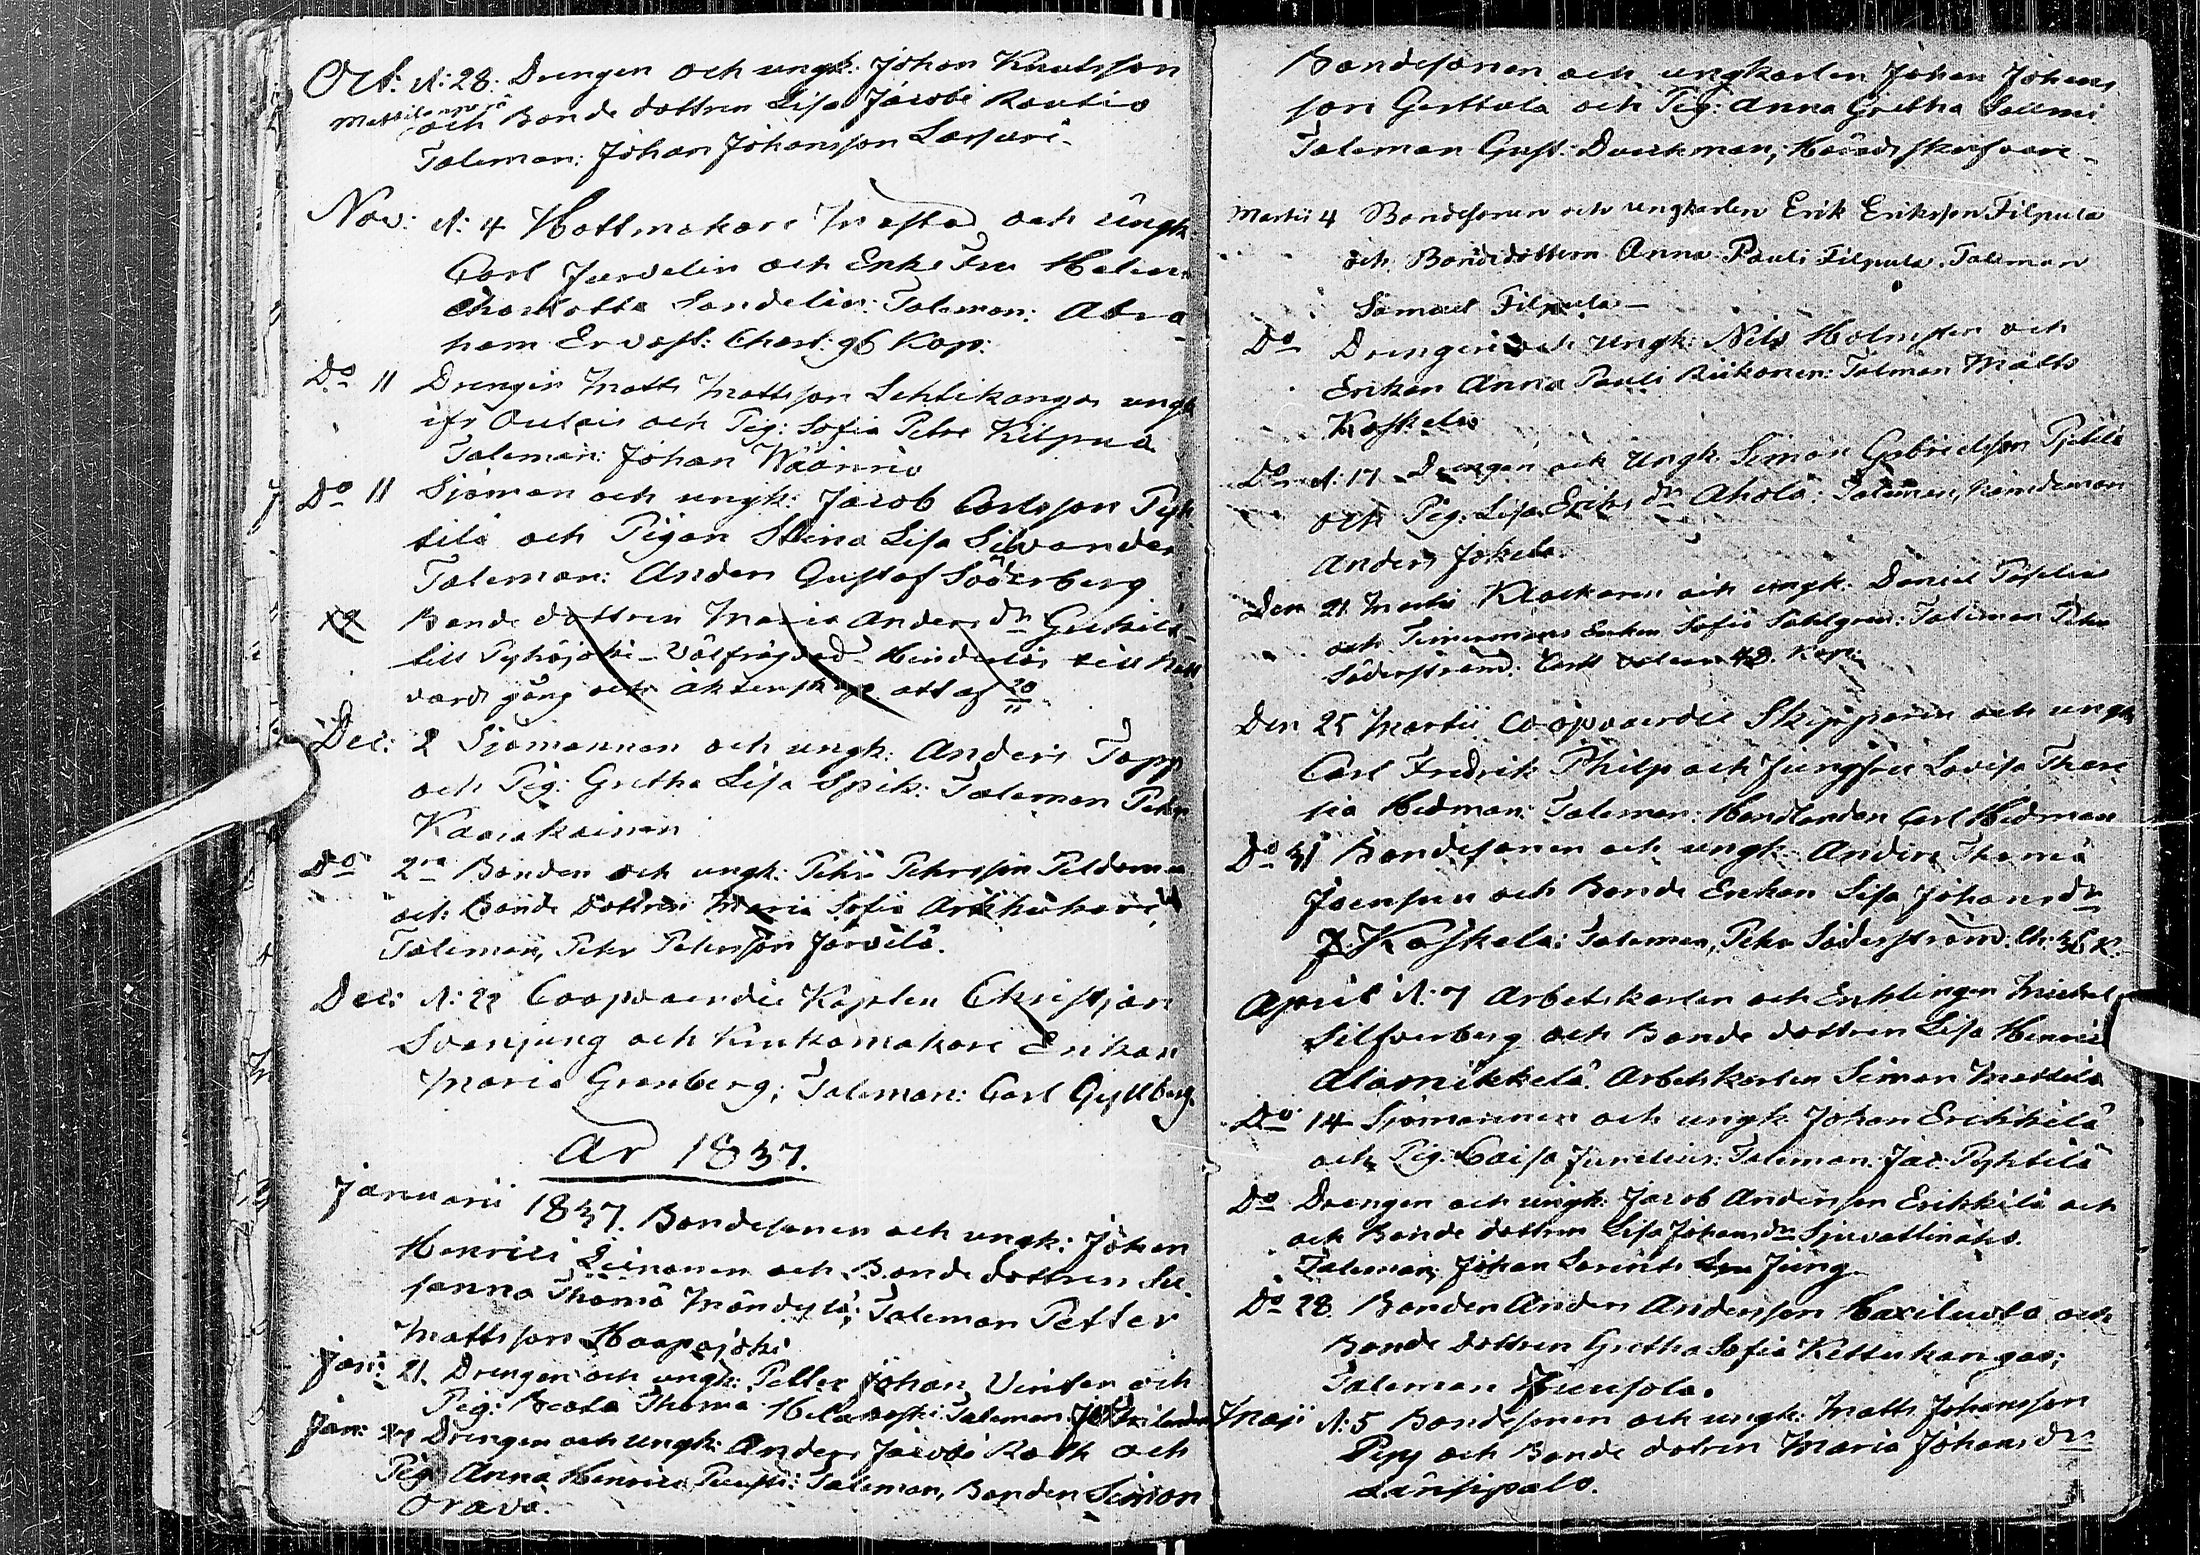 Oct: d: 28. Drengen och ungk: Johan Knutsson
Mattilanperä
och Bonde dottren Lisa Jacobi Rautio
Taleman: Johan Johansson Lassuri.
Nov: d: 4 Hattmakare Mästa och ungk
Carl Juvelin och Enke Fru Helena
Charlotta Sandelin: Taleman: Abra
ham Ervast: Chart: 96 Kop:
Do 11 Drengen Matts Mattsson Lehtikangas ungk
ifr Oulais och Pig: Sofia Petri Kilpua
Taleman: Johan Wäänniö
Do 11 Sjöman och ungk: Jacob Carlsson Pyh
tilä och Pigan Stina Lisa Silvander
Taleman: Anders Gustaf Söderberg
19 Bonde dottren Maria Anders dr
till Pyhäjoki – Välfrägdad – Hinderlös till Natt
vards gång och äktenskap att af 20/11
Dec: 2 Sjömannen och ungk: Anders Topp
och Pig: Gretha Lisa Spik: Taleman Petter
Kaarakainen
Do 2ra Bonden och ungk: Petri Pehrsson Peldoma
och Bonde Dottren Maria Sofia
Taleman, Pehr Pehrsson Järvelä.
Dec: d: 27 Coopvaerdie Kapten Christian
Svanjung och Krukomakare Enkan
Maria Granberg; Taleman: Carl Gyllberg
År 1837.
Januarii 1837. Bondesonen och ungk: Johan
Henrici Leinonen och Bonde dottren Su
sanna Thomä Mändylä; Taleman Petter
Mattsson Haapajoki
Jan: 21. Drengen och ungk: Petter Johan Vinter och
Pig: Beata Thoma Taleman
Jan: 27 Drengen och ungk: Anders Jacobi Rath och
Pig Anna Henrici Taleman, Bonden Simon
Orava.
Bondesonen och ungkarlen Johan Johans
son Gerttula och Pig: Anna Gretha Salmi
Taleman Gust: Durkman, Häradskrifvare –
Martii 4 Bondesonen och ungkarlen Erik Eriksson Filpula
och Bondedottern Anna Pauli Filpula. Taleman
Samuel Filpula –
Do Drengen och ungk: Nils Holmsten och
Enkan Anna Pauli Riikonen: Talman Matts
Koskela
Do d: 17 Drengen och Ungk. Simon Gabrielsson Pjetilä
och Pig: Lisa Eriks dr Ahola: Taleman, Nämdeman
Anders Jokela.
Den 21 Martii Klockaren och ungk: Daniel
och Timmermans Enkan Sofia Sahlgren: Taleman Pehr
Söderström: 48. Kop:
Den 25 Martii Coopvaerdie Skepparen och ungk
Carl Fredrik Philp och Jungfru Lovisa There
sia Hedman: Taleman: Handlanden Carl Hedman
Do 31 Bondesonen och ungk: Anders Thomä
Joensuu och Bonde Enkan Lisa Johansdr
Koskela: Taleman, Pehr Söderström. Ch: 36 K:
April d. 7 Arbetskarlen och Enklingen Michel
Silfverberg och Bonde dottren Lisa Henrici
Alamikkelä. Arbetskarlen Simon Mattila
Do 14 Sjömannen och ungk Johan Erikkilä
och Pig: Caisa Junelius: Taleman. Jac: Pyhtilä
Do Drengen och ungk: Jacob Andersson Erikkilä och
och Bonde dottren Lisa Johansdr
Taleman, Johan Jung.
Do 28. Bonden Anders Andersson Haxiluoto och
Bonde dottren Gretha Sofia Kettukangas;
Taleman Juusola.
Maji d: 5 Bondesonen och ungk: Matts Johansson
Pyy och Bonde dotren Maria Johansdr
Länsipalo.